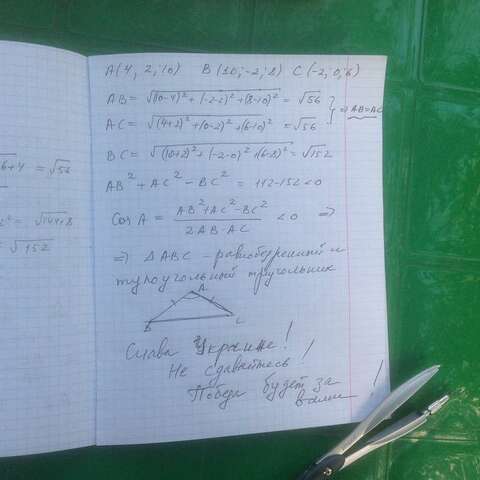 6+4 = √56
² = √144+8
= √152
A(4, 2, 10) B(10, -2, 8) C(-2, 0, 6)
AB = √((10-4)² + (-2-2)² + (8-10)²) = √56
AC = √((4+2)² + (0-2)² + (6-10)²) = √56 } ⇒ AB=AC
BC = √((10+2)² + (-2-0)² + (6-8)²) = √152
AB² + AC² - BC² = 112-152<0
Cos A = (AB²+AC²-BC²)/(2AB·AC) < 0 ⇒
⇒ ΔABC - равнобедренный и
тупоугольный треугольник
A
B C
Слава Украине!
Не сдавайтесь!
Победа будет за
вами!